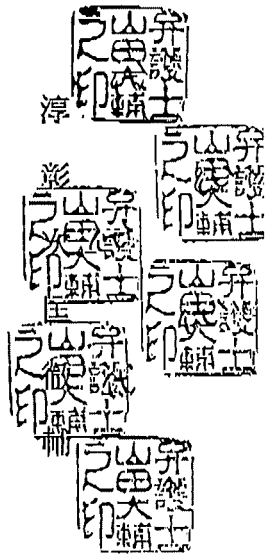 弁護士山田大輔之印
淳
弁護士山田大輔之印
彰
弁護士山田大輔之印
弁護士山田大輔之印
弁護士山田大輔之印
弁護士山田大輔之印